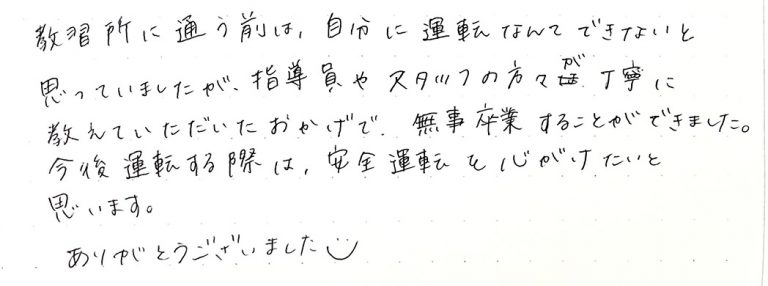 教習所に通う前は、自分に運転なんてできないと
思っていましたが、指導員やスタッフの方々が丁寧に
教えていただいたおかげで、無事卒業することができました。
今後運転する際は、安全運転を心がけたいと
思います。
ありがとうございました